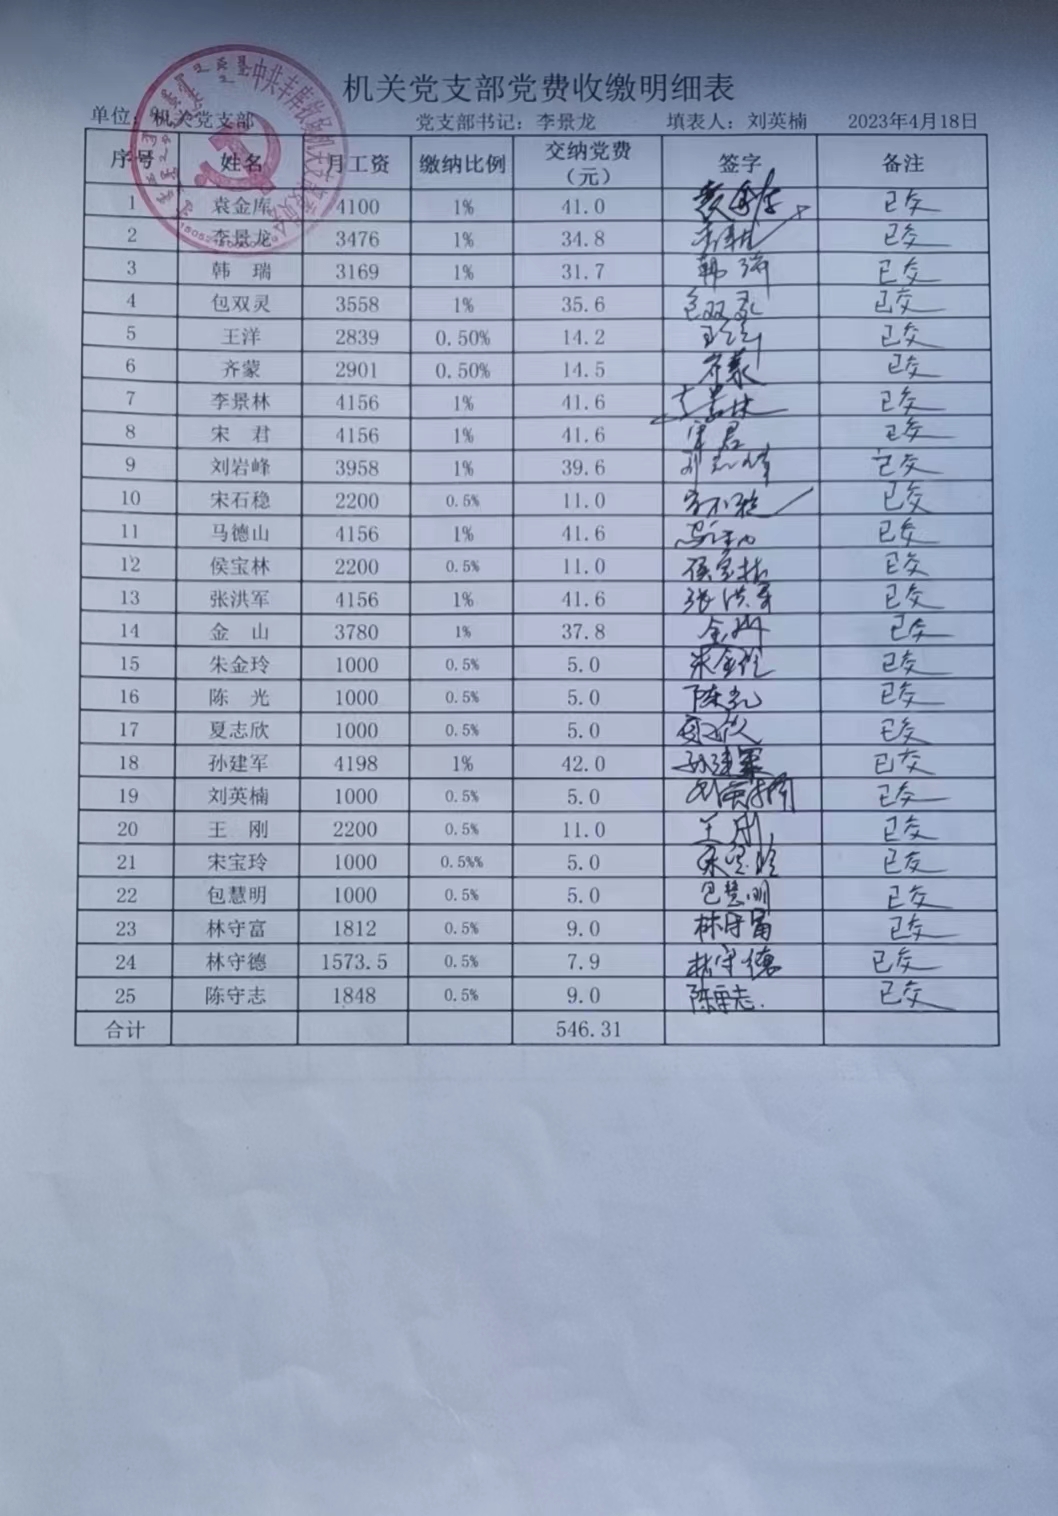 机关党支部党费收缴明细表
单位：机关党支部 党支部书记：李景龙 填表人：刘英楠 2023年4月18日
序号 姓名 月工资 缴纳比例 交纳党费（元） 签字 备注
1 袁金库 4100 1% 41.0 袁金库 已交
2 李景龙 3476 1% 34.8 已交
3 韩 瑞 3169 1% 31.7 韩瑞 已交
4 包双灵 3558 1% 35.6 包双灵 已交
5 王洋 2839 0.50% 14.2 已交
6 齐蒙 2901 0.50% 14.5 齐蒙 已交
7 李景林 4156 1% 41.6 李景林 已交
8 宋 君 4156 1% 41.6 宋君 已交
9 刘岩峰 3958 1% 39.6 刘岩峰 已交
10 宋石稳 2200 0.5% 11.0 宋石稳 已交
11 马德山 4156 1% 41.6 马德山 已交
12 侯宝林 2200 0.5% 11.0 侯宝林 已交
13 张洪军 4156 1% 41.6 张洪军 已交
14 金 山 3780 1% 37.8 金山 已交
15 朱金玲 1000 0.5% 5.0 朱金玲 已交
16 陈 光 1000 0.5% 5.0 陈光 已交
17 夏志欣 1000 0.5% 5.0 夏志欣 已交
18 孙建军 4198 1% 42.0 孙建军 已交
19 刘英楠 1000 0.5% 5.0 刘英楠 已交
20 王 刚 2200 0.5% 11.0 王刚 已交
21 宋宝玲 1000 0.5%% 5.0 宋宝玲 已交
22 包慧明 1000 0.5% 5.0 包慧明 已交
23 林守富 1812 0.5% 9.0 林守富 已交
24 林守德 1573.5 0.5% 7.9 林守德 已交
25 陈守志 1848 0.5% 9.0 陈守志. 已交
合计 546.31